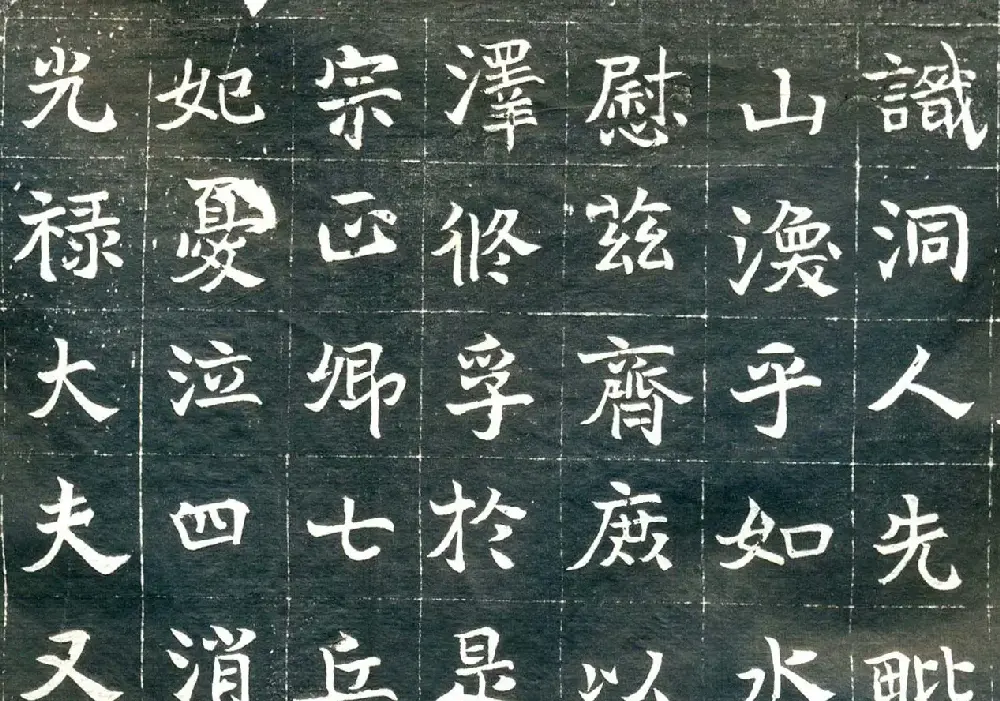 識洞人先毗
山渙乎如水
慰茲齊庶以
澤脩孚於是
宗正卿七丘
妃憂泣四消
光禄大夫又